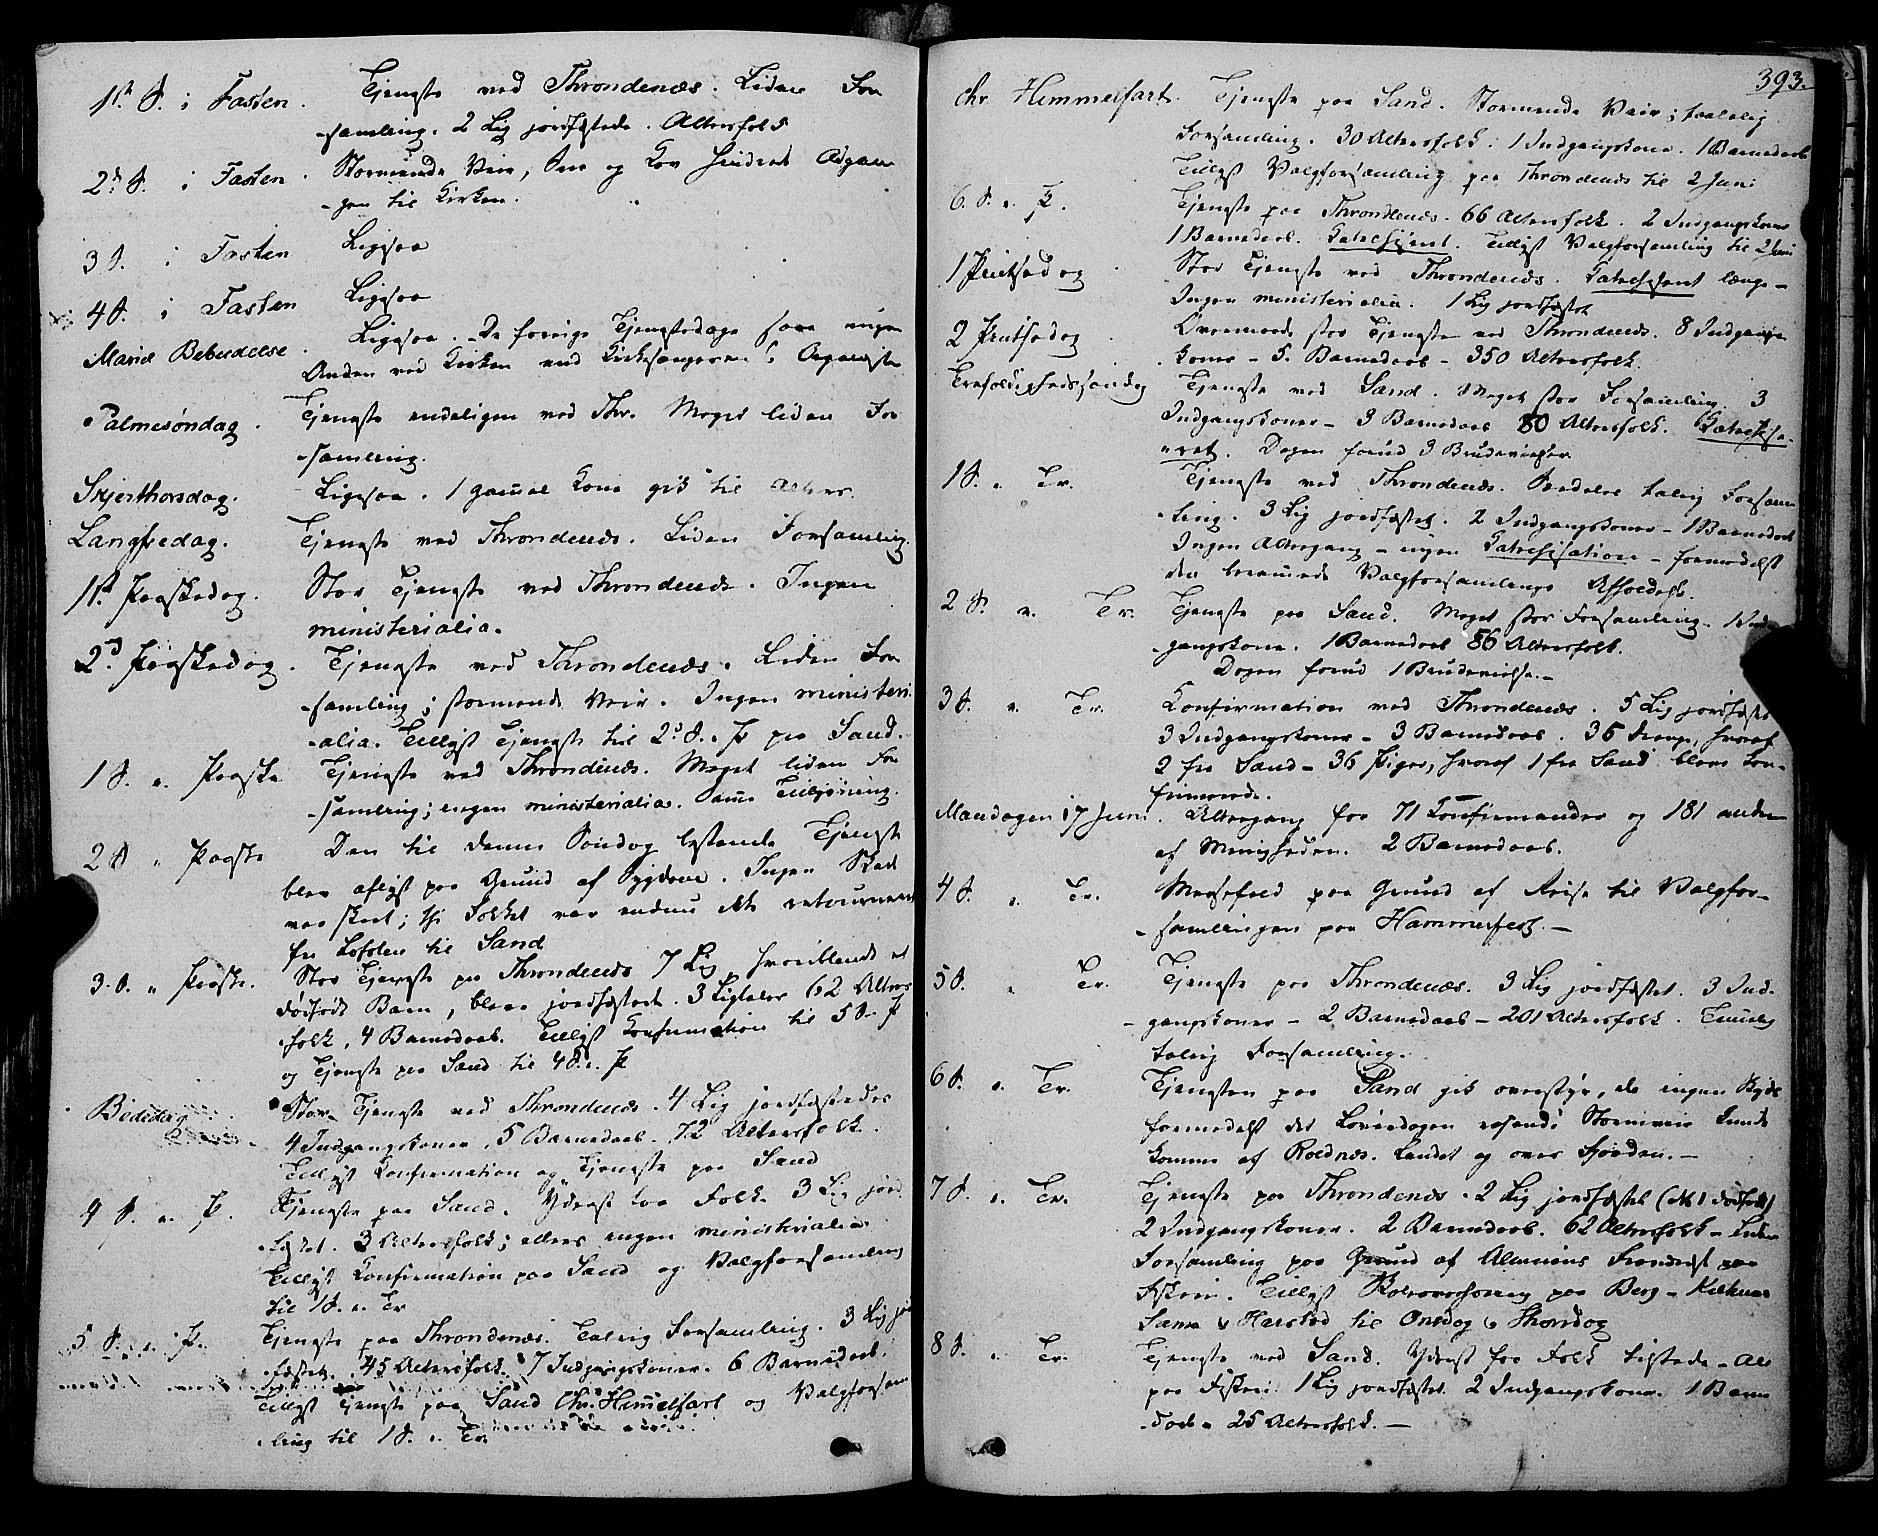 1st S. i Fasten. Tjeneste ved Throndenæs. Liden For
-samling. 2 Lig jordfæstede. Altersfolk
2d S. i Fasten. Stormende Veir, Snee og Kov hindret Adgan
-gen til Kirken.
3 S. i Fasten Ligesaa
4 S. i Fasten Ligesaa
Mariæ Bebudelse. Ligesaa. De forrige Tjenestedage saae ingen
Anden ved Kirken end Kirkesangeren & Organisten
Palmesøndag. Tjeneste endeligen ved Thr. Meget liden For
-samling.
Skjerthorsdag. Ligesaa. 1 gammel Kone gik til Alters.
Langfredag. Tjeneste ved Throndenæs. Liden Forsamling.
1st Paaskedag. Stor Tjeneste ved Throndenæs. Ingen
ministerialia.
2d Paaskedag. Tjeneste ved Throndenæs. Liden For
-samling; stormende Veir. Ingen ministeri
-alia. Tillyst Tjeneste til 2d S. e. P. paa Sand.
1 S. e. Paaske Tjeneste ved Throndenæs. Meget liden For
-samling; ingen ministerialia. Samme Tillysning.
2 S " Paaske Den til denne Søndag bestemte Tjeneste
blev aflyst paa Grund af Sygdom. Ingen Skade
var skeet; thi Folket var endnu ikke retourneret
fra Lofoden til Sand
3. S. " Paaske. Stor Tjeneste paa Throndenæs 7 Lig, hvoriblandt et
dødfødt Barn, bleve jordfæstede. 3 Ligtaler 62 Alters
-folk, 4 Barnedaab. Tillyst Confirmation til 5 S. e. P
og Tjeneste paa Sand til 4 S. e. P
Bededag Stor Tjeneste ved Throndenæs. 4 Lig jordfæstedes
4 Indgangskoner, 5 Barnedaab. 72 Altersfolk.
Tillyst Confirmation og Tjeneste paa Sand
4 S. e. P. Tjeneste paa Sand. Yderst faa Folk. 3 Lig jord
-fæstet. 3 Altersfolk; ellers ingen ministerialia
Tillyst Confirmation paa Sand og Valgforsamling
til 1 S. e. Tr
5 S. e. P. Tjeneste paa Throndenæs. Talrig Forsamling. 3 Lig jord
-fæstet. 45 Altersfolk. 7 Indgangskoner. 6 Barnedaab.
Tillyst Tjeneste paa Sand Chr. Himmelfart og Valgforsam
-ling til 1 S. e. Tr.
393.
Chr Himmelfart. Tjeneste paa Sand. Stormende Veir; taalelig
Forsamling. 30 Altersfolk. 1 Indgangskone. 1 Barnedaab
Tillyst Valgforsamling paa Throndenæs til 2 Juni
6. S. e. P. Tjeneste paa Throndenæs. 66 Altersfolk. 2 Indgangskoner
1 Barnedaab. Catechiseret. Tillyst Valgforsamling til 2 Juni
1 Pintsedag Stor Tjeneste ved Throndenæs. Catechiseret længe -
Ingen ministerialia. 1 Lig jordfæstet
2 Pintsedag Overmaade stor Tjeneste ved Throndenæs. 8 Indgangs
koner - 5. Barnedaab - 350 Altersfolk.
Trefoldighedssøndag Tjeneste ved Sand. Meget stor Forsamling. 3
Indgangskoner - 3 Barnedaab 80 Altersfolk. Catechise-
-ret. Dagen forud 3 Brudevielser
1 S. e. Tr. Tjeneste ved Throndenæs. Særdeles talrig Forsam
-ling. 3 Lig jordfæstet. 2 Indgangskoner - 1 Barnedaab
Ingen Altergang - ingen Catechisation - formedelst
den berammede Valgforsamlings Afholdelse.
2 S. e. Tr. Tjeneste paa Sand. Meget stor Forsamling. 1 Ind
-gangskone. 1 Barnedaab 86 Altersfolk.
Dagen forud 1 Brudevielse. -
3 S. e. Tr. Confirmation ved Throndenæs. 5 Lig jordfæstet
3 Indgangskoner - 3 Barnedaab. 35 Drenge, hvoraf
2 fra Sand - 36 Piger, hvoraf 1 fra Sand bleve Con-
firmerede.
Mandagen 17 Juni. Altergang for 71 Confirmander og 181 andre
af Menigheden. 2 Barnedaab.
4 S. e. Tr. Messefald paa Grund af Reise til Valgfor-
-samlingen paa Hammerfest. -
5 S. " Tr. Tjeneste paa Throndenæs. 3 Lig jordfæstet. 3 Ind-
-gangskoner - 2 Barnedaab - 201 Altersfolk. Temmelig
talrig Forsamling.
6 S. e. Tr. Tjenesten paa Sand gik overstyr, da ingen Skyds
formedelst det Løverdagen rasende Stormveir kunde
komme af Roldnes. Landet og over Fjorden. -
7 S. e. Tr. Tjeneste paa Throndenæs. 2 Lig jordfæstet (det 1 dødfødt)
2 Indgangskoner. 2 Barnedaab. 62 Altersfolk - Liden
Forsamling paa Grund af Almuens Fraværelse paa
Fiskeri. Tillyst paa Berg - Kilhus
Sama & Harstad til Onsdag & Thorsdag
8 S. e. Tr. Tjeneste ved Sand. Yderst faa Folk tilstede - Alle
paa Fiskeri. 1 Lig jordfæstet. 2 Indgangskoner. 1 Barne
-daab - 25 Altersfolk. -